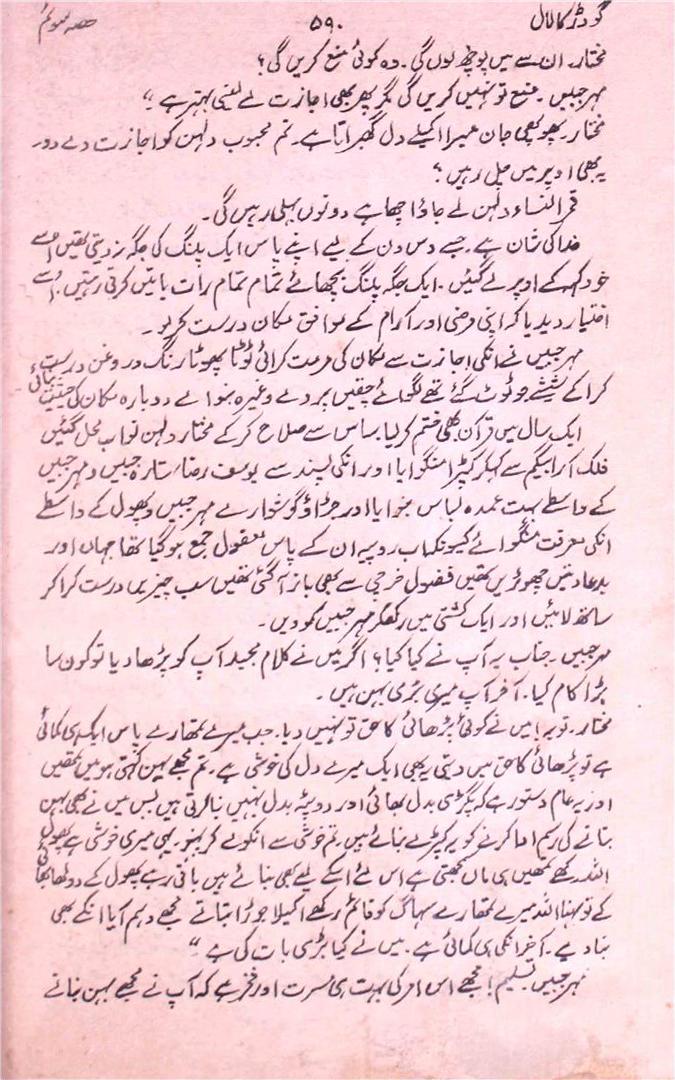 گودڑ کا لال ۵۹۰ حصہ سوئم
مختار۔ ان سے میں پوچھ لوں گی۔ وہ کوئی منع کریں گی؟
مہرجبیں۔ منع تو نہیں کریں گی مگر پھر بھی اجازت لے لینی بہتر ہے۔"
مختار۔ پھوپھی جان میرا اکیلے دل گھبراتا ہے۔ تم محبوب دلہن کو اجازت دے دو۔
یہ بھی اوپر میں چل رہیں؟
قمرالنساء دلہن لے جاؤ اچھا ہے دونوں بہلی رہیں گی۔
خدا کی شان ہے۔ جسے دس دن کے لیے اپنے پاس ایک پلنگ کی جگہ نہ دیتی تھیں اسے
خود کہہ کے اوپر لے گئیں۔ ایک جگہ پلنگ بچھائے تمام تمام رات باتیں کرتی رہتیں۔ اُسے
اختیار دیدیا کہ اپنی مرضی اور آرام کے موافق مکان درست کر لو۔
مہرجبیں نے انکی اجازت سے مکان کی مرمت کرائی ٹوٹا پھوٹا رنگ و روغن درست
کرا کے شیشے جو ٹوٹ گئے تھے لگوائے چقیں پردے وغیرہ بنوا لے دوبارہ مکان کی حیثیت بنائی
ایک سال میں قرآن بھی ختم کر لیا۔ ساس سے صلاح کر کے مختار دلہن نواب محل گئیں
فلک آرا بیگم سے کہکر کپڑا منگوایا اور انکی پسند سے یوسف رضا ستارہ جبیں و مہرجبیں
کے واسطے بہت عمدہ لباس بنوایا اور جڑاؤ گوشوارے مہرجبیں و پھول کے واسطے
انکی معرفت منگوائے کیونکہ اب روپیہ ان کے پاس معقول جمع ہو گیا تھا جہاں اور
بدعادتیں چھوڑیں تھیں فضول خرچی سے بھی باز آ گئی تھیں سب چیزیں درست کرا کر
ساتھ لائیں اور ایک کشتی میں رکھکر مہرجبیں کو دیں۔
مہرجبیں۔ جناب یہ آپ نے کیا کیا؟ اگر میں نے کلام مجید آپ کو پڑھا دیا تو کون سا
بڑا کام کیا۔ آخر آپ میری بڑی بہن ہیں۔
مختار۔ توبہ! میں نے کوئی پڑھائی کا حق تو نہیں دیا۔ جب میرے تمھارے پاس ایک ہی کمائی
ہے تو پڑھائی کا حق میں دیتی یہ بھی ایک میرے دل کی خوشی ہے۔ تم مجھے بہن کہتی ہو میں تمھیں
اور یہ عام دستور ہے کہ پگڑی بدل بھائی اور دوپٹہ بدل بہنیں بنا کرتی ہیں بس میں نے بھی بہن
بنانے کی رسم ادا کرنے کو یہ کپڑے بنائے ہیں تم خوشی سے انکو لے کر پہنو۔ یہی میری خوشی ہے پھول
اللہ رکھے تمھیں ہی ماں سمجھتی ہے اس لئے اسکے لیے بھی بنائے ہیں باقی رہے پھول کے دولھا بھائی
کے تو بہنا اللہ میرے تمھارے سہاگ کو قائم رکھے اکیلا جوڑا بناتے مجھے وہم آیا انکے بھی
بنا دیے۔ آخر انکی ہی کمائی ہے۔ میں نے کیا بڑی بات کی ہے۔"
مہرجبیں تسلیم! مجھے اس امر کی بہت ہی مسرت اور فخر ہے کہ آپ نے مجھے بہن بنانے